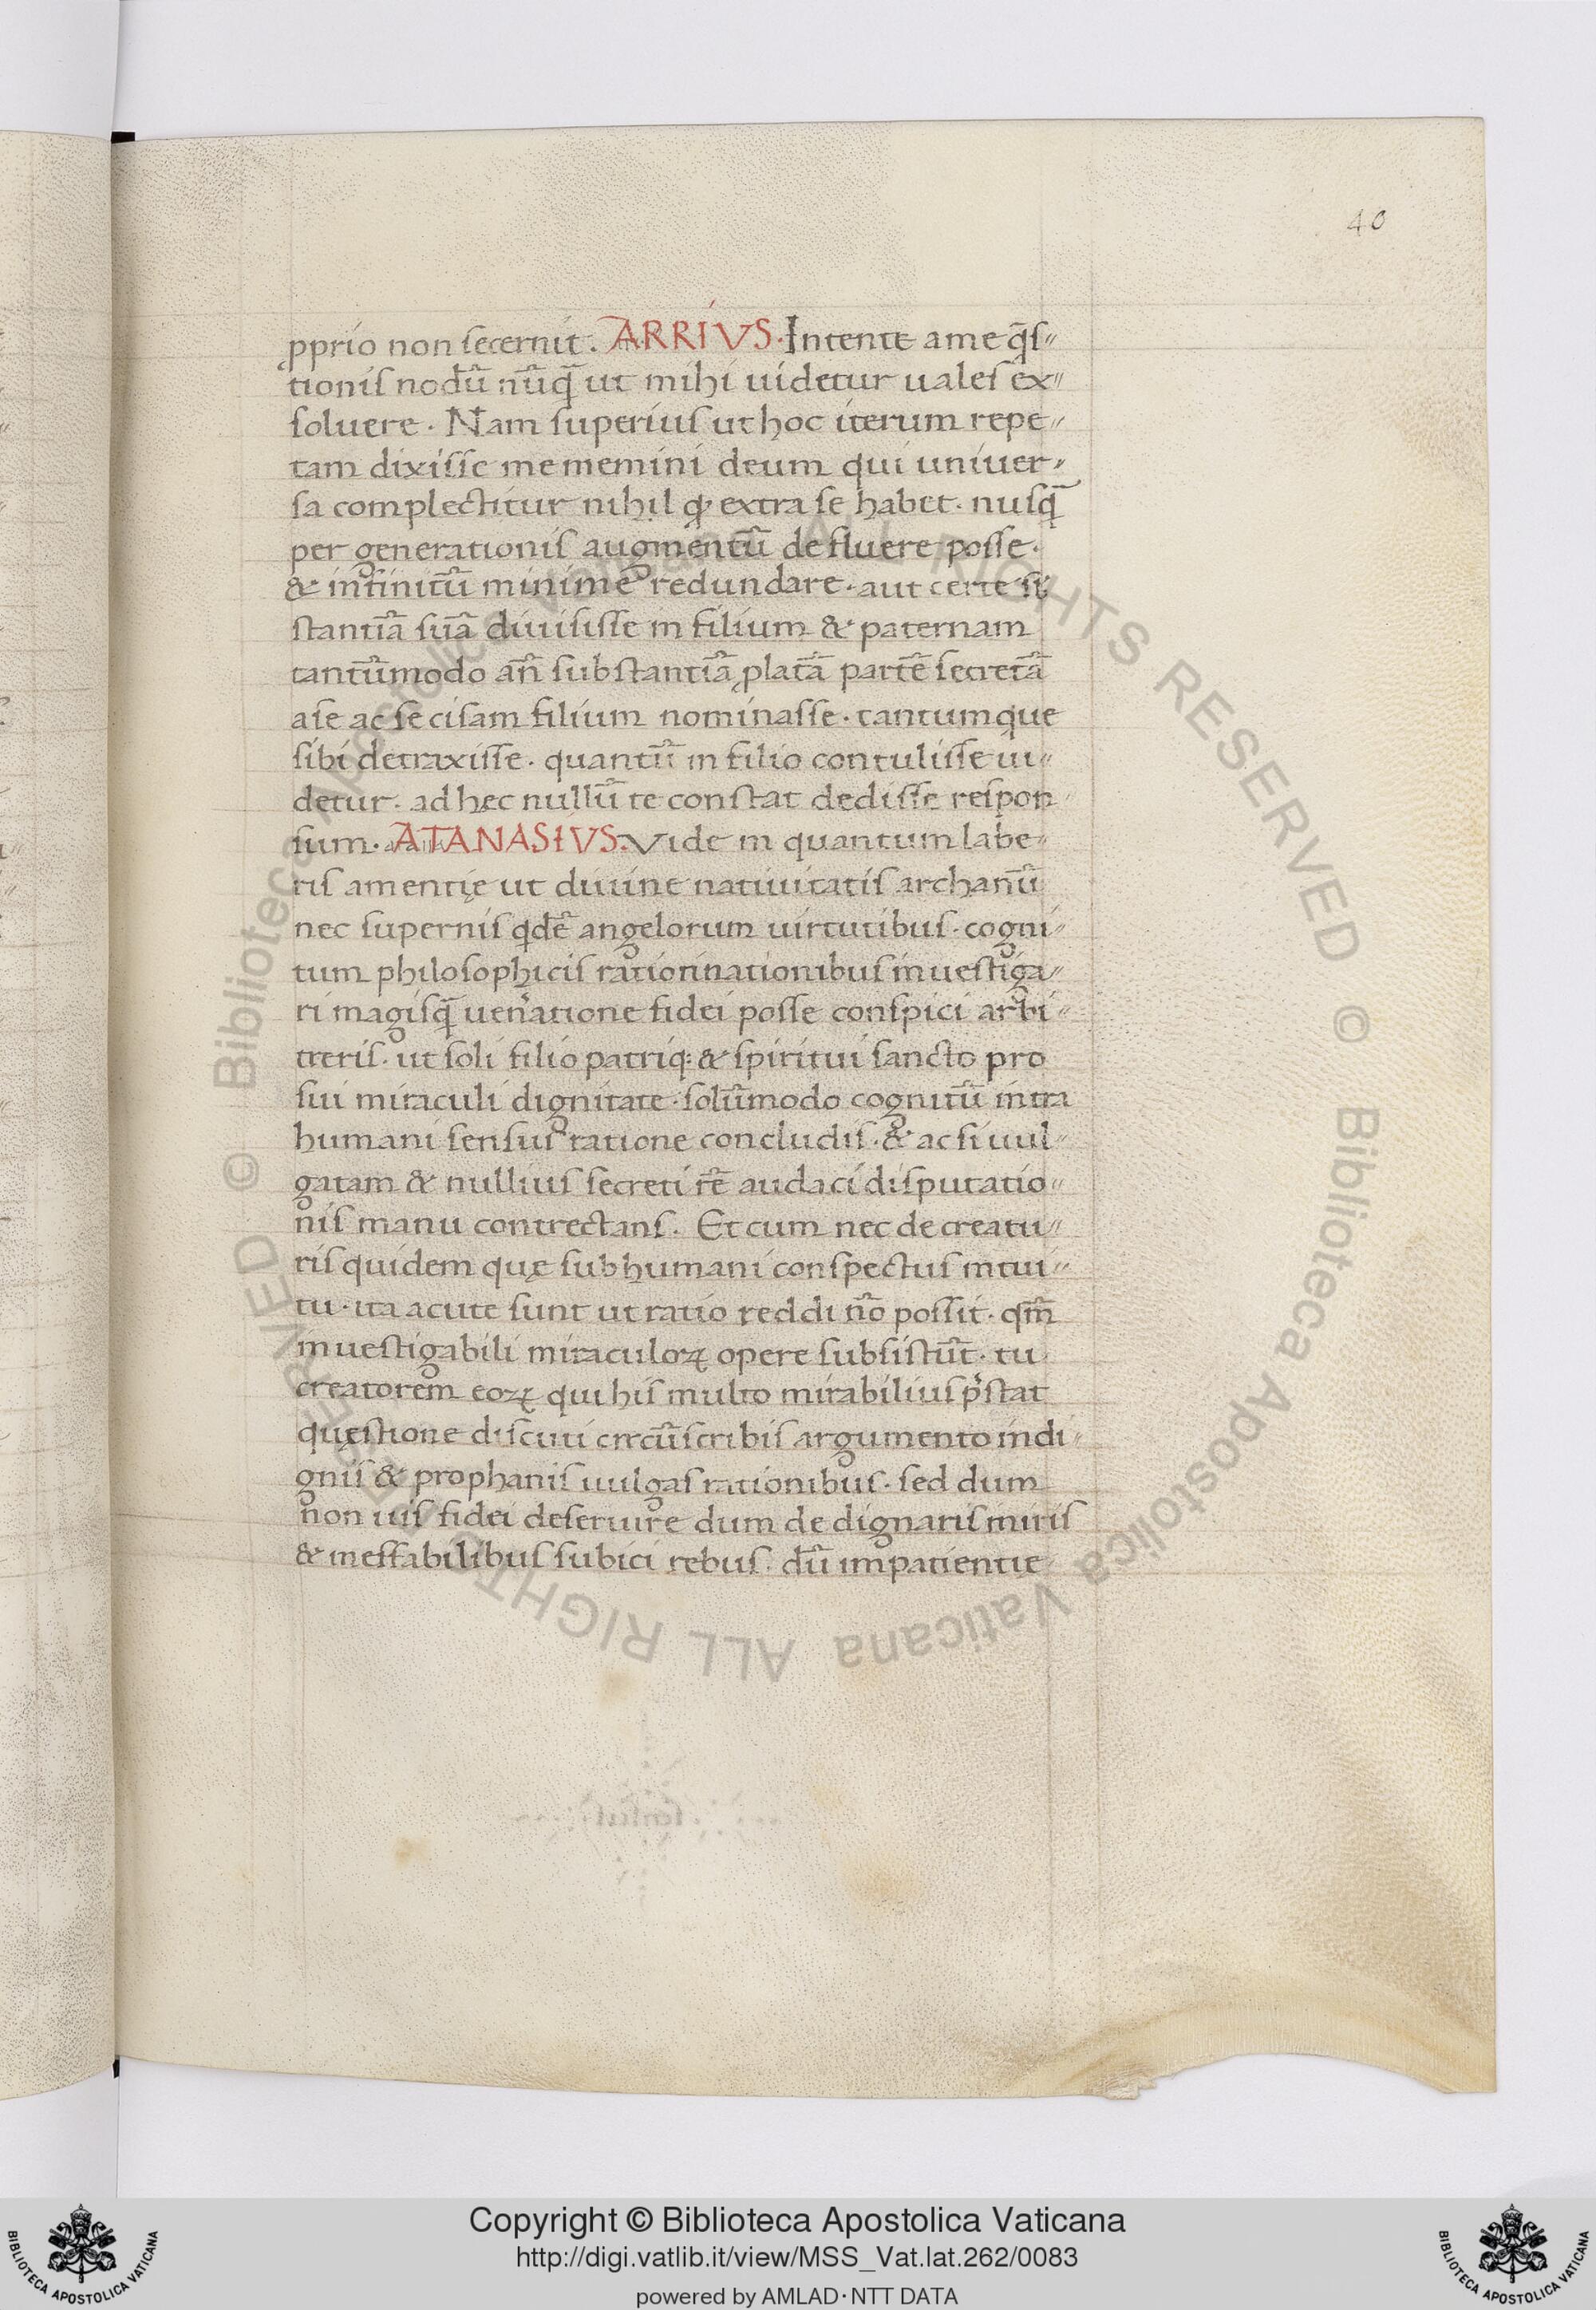 40
ꝓprio non secernit. ARRIVS. Intente a me q̃s-
tionis nodũ nũq̃ ut mihi uidetur uales ex-
soluere. Nam superius ut hoc iterum repe-
tam dixisse me memini deum qui uniuer-
sa complectitur nihil qꝫ extra se habet. nusq̃
per generationis augmentũ defluere posse.
& infinitũ minime redundare. aut certe
stantiã suã diuisisse in filium & paternam
tantũmodo añ substantiã ꝓlatã partẽ secretã
a se ac se cisam filium nominasse. tantumque
sibi detraxisse. quantũ in filio contulisse ui-
detur. ad hec nullũ te constat dedisse respon
sum. ATANASIVS. Vide in quantum labe-
ris amentię ut diuine natiuitatis archanũ
nec supernis qdẽ angelorum uirtutibus. cogni-
tum philosophicis ratiocinationibus inuestiga-
ri magisq̃ ueñatione fidei posse conspici arbi-
treris. ut soli filio patriq: & spiritui sancto pro
sui miraculi dignitate. solũmodo cognitũ intra
humani sensus ratione concludis. & ac si uul-
gatam & nullius secreti rẽ audaci disputatio-
nis manu contrectans. Et cum nec de creatu-
ris quidem quę sub humani conspectus intui-
tu. ita acute sunt ut ratio reddi nõ possit. qm̃
inuestigabili miraculoꝝ opere subsistũt. tu
creatorem eoꝝ qui his multo mirabilius p̃stat
quęstione discuti circũscribis argumento indi-
gnis & prophanis uulgas rationibus. sed dum
non uis fidei deseruire dum dedignaris miris
& ineffabilibus subici rebus. dũ impatientię
Biblioteca Apostolica Vaticana ALL RIGHTS RESERVED ©
Biblioteca Apostolica Vaticana ALL RIGHTS RESERVED ©
Copyright © Biblioteca Apostolica Vaticana
http://digi.vatlib.it/view/MSS_Vat.lat.262/0083
powered by AMLAD·NTT DATA
BIBLIOTECA APOSTOLICA VATICANA
BIBLIOTECA APOSTOLICA VATICANA